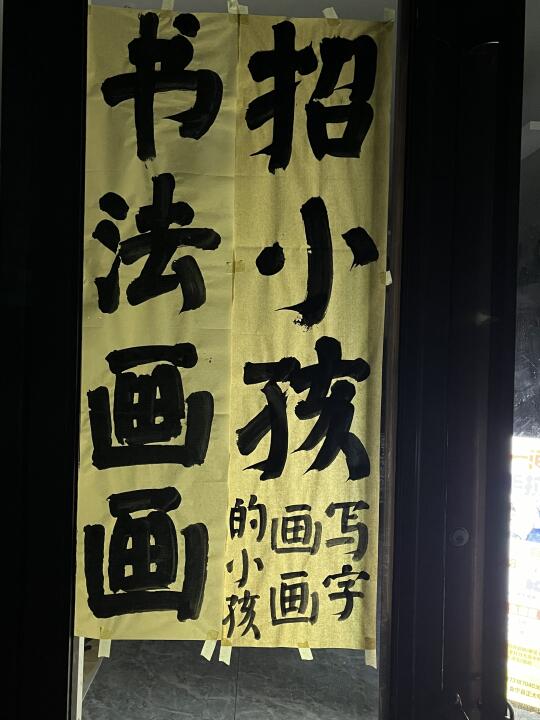 招小孩
写字
画画
的小孩
书法画画